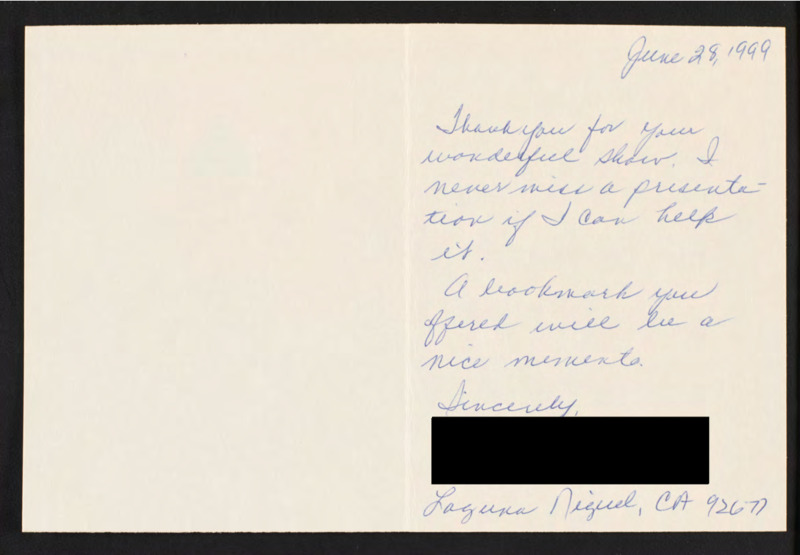 June 28, 1999
Thank you for your
wonderful show. I
never miss a presenta-
tion if I can help
it.
A bookmark you
offered will be a
nice memento.
Sincerely,
Laguna Niguel, CA 92677